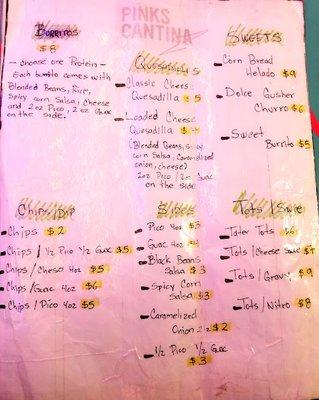 PINKS
CANTINA
BURRITOS
$8
- choose one Protein -
Each burrito comes with
Blended Beans, Rice,
Spicy corn Salsa, Cheese
and 2oz Pico, 2oz Guac
on the side.
QUESADILLAS
- Classic Cheese
Quesadilla $5
- Loaded Cheese
Quesadilla
(Blended Beans, Spicy
corn Salsa, Caramelized
onion, cheese)
2oz Pico / 2oz Guac
on the side
SWEETS
- Corn Bread
Helado $9
- Dolce Gusher
Churro $6
- Sweet
Burrito $5
Chips/Dip
- Chips $2
- Chips / 1/2 Pico 1/2 Guac $5
- Chips / Cheso 4oz $5
- Chips / Guac 4oz $6
- Chips / Pico 4oz $5
Sides
- Pico 4oz $3
- Guac 4oz $4
- Black Beans
Salsa $3
- Spicy Corn
Salsa $3
- Caramelized
Onion 2oz $2
- 1/2 Pico 1/2 Guac
$3
Tots /
- Tater Tots $6
- Tots/Cheese Sauce
- Tots/Gravy $9
- Tots/Nitro $8